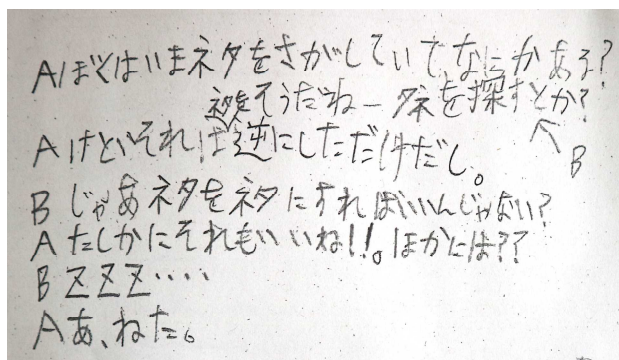 Aぼくはいまネタをさがしていてなにかある?
そうだねータネを探すとか?
B
Aけどいそれは逆にしただけだし。
Bじゃあネタをネタにすればいいんじゃない?
Aたしかにそれもいいね!!。ほかには??
BZZZ‥‥
Aあ、ねた。